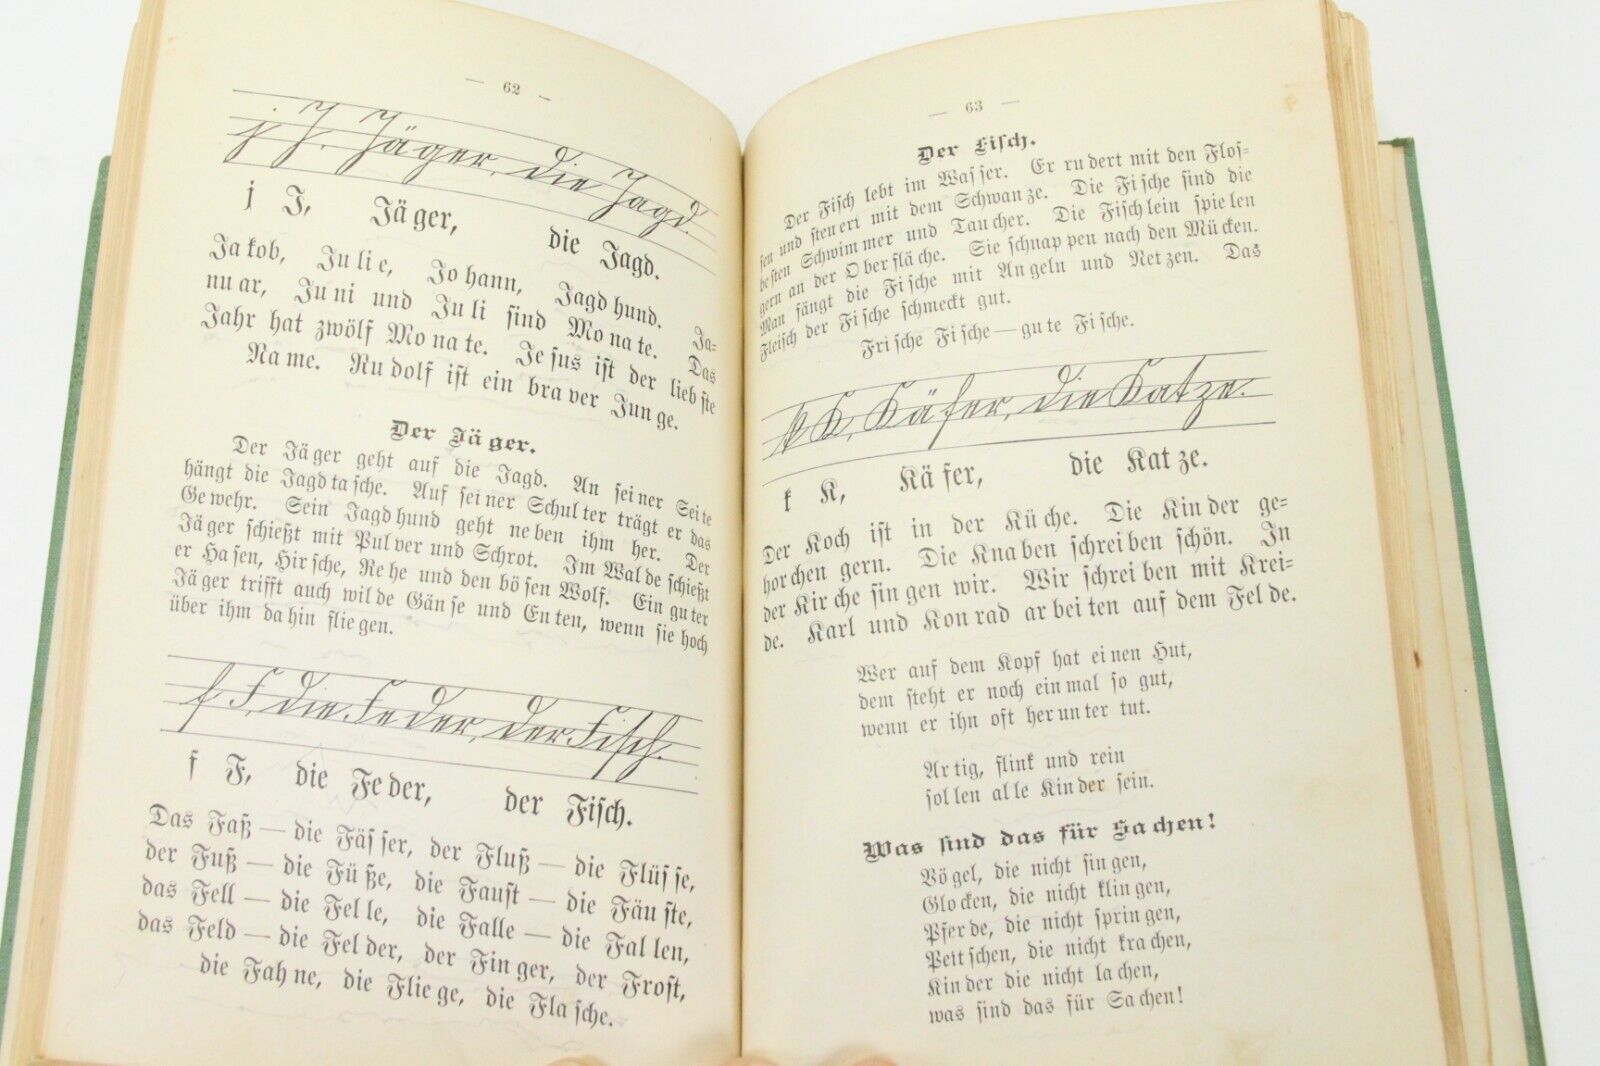 — 62 —
j J. Jäger, die Jagd.
j J, Jä ger, die Jagd.
Ja kob, Ju li e, Jo hann, Jagd hund. Ja-
nu ar, Ju ni und Ju li sind Mo na te. Das
Jahr hat zwölf Mo na te. Je sus ist der lieb ste
Na me. Ru dolf ist ein bra ver Jun ge.
Der Jä ger.
Der Jä ger geht auf die Jagd. An sei ner Sei te
hängt die Jagd ta sche. Auf sei ner Schul ter trägt er das
Ge wehr. Sein Jagd hund geht ne ben ihm her. Der
Jä ger schießt mit Pul ver und Schrot. Im Wal de schießt
er Ha sen, Hir sche, Re he und den bö sen Wolf. Ein gu ter
Jä ger trifft auch wil de Gän se und En ten, wenn sie hoch
über ihm da hin flie gen.
f F, die Feder, der Fisch.
f F, die Fe der, der Fisch.
Das Faß — die Fäs ser, der Fluß — die Flüs se,
der Fuß — die Fü ße, die Faust — die Fäu ste,
das Fell — die Fel le, die Falle — die Fal len,
das Feld — die Fel der, der Fin ger, der Frost,
die Fah ne, die Flie ge, die Fla sche.
— 63 —
Der Fisch.
Der Fisch lebt im Was ser. Er ru dert mit den Flos-
sen und steu ert mit dem Schwan ze. Die Fi sche sind die
be sten Schwim mer und Tau cher. Die Fisch lein spie len
gern an der O ber flä che. Sie schnap pen nach den Mü cken.
Man fängt die Fi sche mit An geln und Net zen. Das
Fleisch der Fi sche schmeckt gut.
Fri sche Fi sche — gu te Fi sche.
k K, Käfer, die Katze.
k K, Kä fer, die Kat ze.
Der Koch ist in der Kü che. Die Kin der ge-
hor chen gern. Die Kna ben schrei ben schön. In
der Kir che sin gen wir. Wir schrei ben mit Krei-
de. Karl und Kon rad ar bei ten auf dem Fel de.
Wer auf dem Kopf hat ei nen Hut,
dem steht er noch ein mal so gut,
wenn er ihn oft her un ter tut.
Ar tig, flink und rein
sol len al le Kin der sein.
Was sind das für Sa chen!
Vö gel, die nicht sin gen,
Glo cken, die nicht klin gen,
Pfer de, die nicht sprin gen,
Peit schen, die nicht kra chen,
Kin der die nicht la chen,
was sind das für Sa chen!